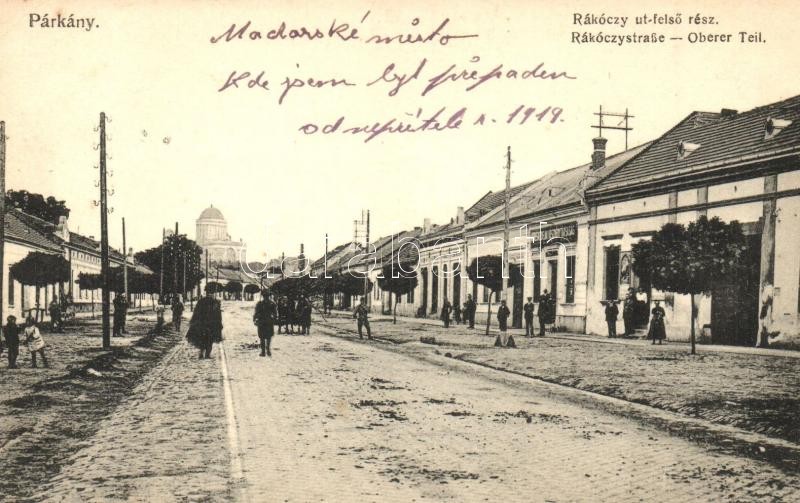 Párkány.
Rákóczy ut-felső rész.
Rákóczystraße — Oberer Teil.
Madarské město
Kde jsem byl přepaden
od nepřítele r. 1919.
darabanth.com